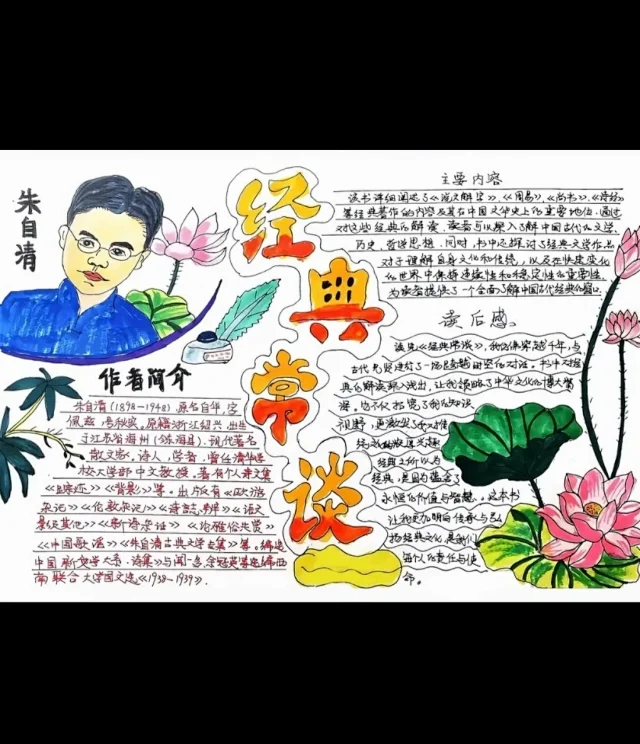 朱自清
经典常谈
作者简介
朱自清(1898—1948)原名自华,字
佩弦,号秋实,原籍浙江绍兴,出生
于江苏省海州(东海县),现代著名
散文家、诗人、学者,曾任清华
校大学部中文教授。著有个
《踪迹》《背影》等。出版有《欧游
杂记》《伦敦杂记》《诗言志辨》《语文
影及其他》《新诗杂话》《论雅俗共赏》
《中国歌谣》《朱自清古典文学专集》等。编选
中国新文学大系·诗集》与闻一多
南联合大学国文选《1938—1939》.
主要内容
该书详细阐述了《说文解字》、《周易》、《尚书》、《诗经》
等经典著作的内容及其在中国文学史上的重要地位,通过
对这些经典的解读,读者可以深入了解中国古代的文学、
历史、哲学思想,同时,书中还探讨了经典文学作品
对于理解自身文化和传统,以及在快速变化
的世界中保持连续性和稳定性的重要性,
为读者提供了一个全面了解中国古代经典的窗口
读后感。
读完《经典常谈》,我仿佛穿越千年,与
古代先贤进行了一场跨越时空的对话。书中对经
典的解读深入浅出,让我领略了中华文化的博大精
深,它不仅拓宽了我的知识
视野,更激发了我对传
统文化的浓厚兴趣
经典之所以为
经典,是因为蕴含了
永恒的价值与智慧。这本书
让我更加明白传承与弘
扬经典文化,是我们
每个人的责任与使
命。